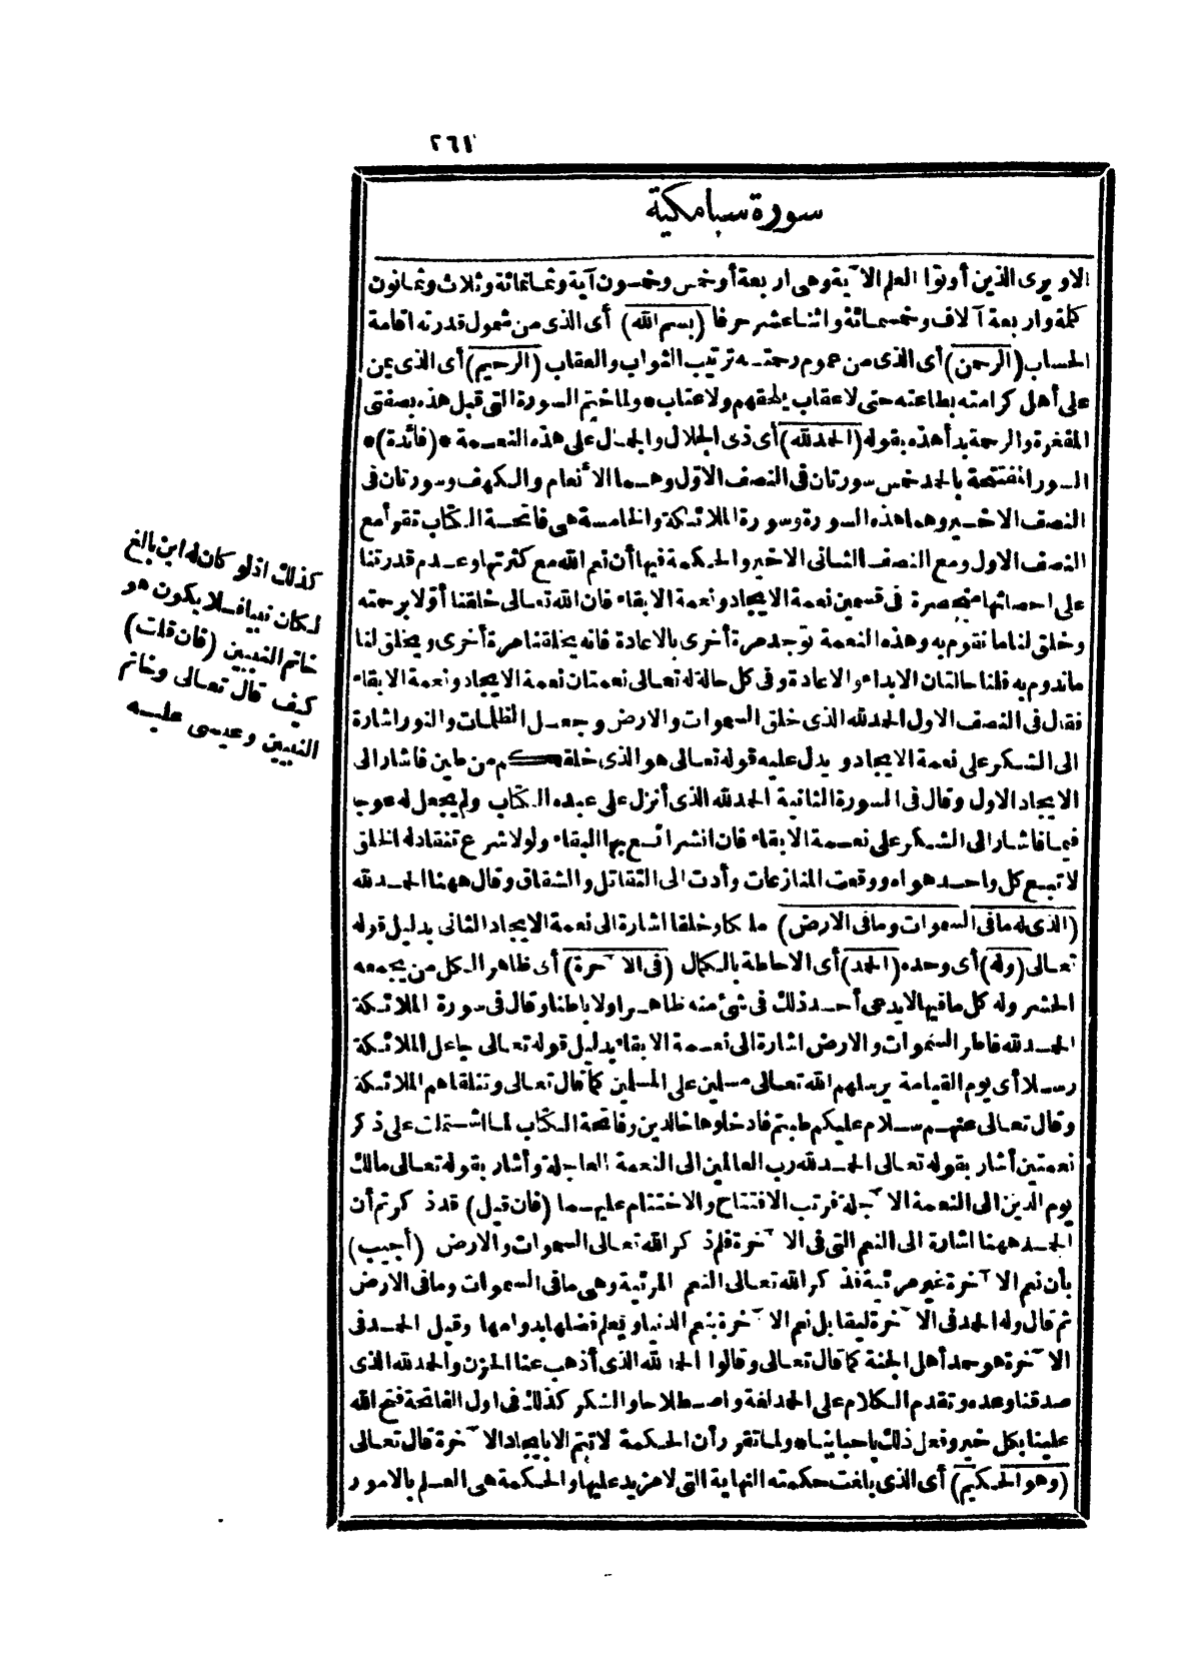 ٢٦١
سورة سبا مكية
الا ويرى الذين أوتوا العلم الآية وهى اربعة أو خمس وخمسون آية وثمانمائة وثلاث وثمانون
كلمة واربعة آلاف وخمسمائة واثنا عشر حرفا (بسم الله) أى الذى من شمول قدرته اقامة
الحساب (الرحمن) أى الذى من عموم رحمته ترتيب الثواب والعقاب (الرحيم) أى الذى يمن
على أهل كرامته بطاعته حتى لا عقاب يلحقهم ولا عتاب * ولما ختم السورة التى قبل هذه بصفتى
المغفرة والرحمة بدأ هذه بقوله (الحمد لله) أى ذى الجلال والجمال على هذه النعمة * (فائدة) *
السور المفتتحة بالحمد خمس سورتان فى النصف الاوّل وهما الأنعام والكهف وسورتان فى
النصف الاخير وهما هذه السورة وسورة الملائكة والخامسة هى فاتحة الكتاب تقرأ مع
النصف الاول ومع النصف الثانى الاخير والحكمة فيها أن نعم الله مع كثرتها وعدم قدرتنا
على احصائها منحصرة فى قسمين نعمة الايجاد ونعمة الابقاء فان الله تعالى خلقنا أوّلا برحمته
وخلق لنا ما نقوم به وهذه النعمة توجد مرة أخرى بالاعادة فانه يخلقنا مرة أخرى ويخلق لنا
ما ندوم به فلنا حالتان الابداء والاعادة وفى كل حالة له تعالى نعمتان نعمة الايجاد ونعمة الابقاء
فقال فى النصف الاول الحمد لله الذى خلق السموات والارض وجعل الظلمات والنور اشارة
الى الشكر على نعمة الايجاد ويدل عليه قوله تعالى هو الذى خلقكم من طين فاشار الى
الايجاد الاول وقال فى السورة الثانية الحمد لله الذى أنزل على عبده الكتاب ولم يجعل له عوجا
قيما فاشار الى الشكر على نعمة الابقاء فان الشرائع بها البقاء ولولا شرع تنقاد له الخلق
لاتبع كل واحد هواه ووقعت المنازعات وأدت الى التقاتل والشقاق وقال ههنا الحمد لله
(الذى له ما فى السموات وما فى الارض) ملكا وخلقا اشارة الى نعمة الايجاد الثانى بدليل قوله
تعالى (وله) أى وحده (الحمد) أى الاحاطة بالكمال (فى الآخرة) أى ظاهر الكل من يجمعه
الحشر وله كل ما فيها لا يدعى أحد ذلك فى شئ منه ظاهرا ولا باطنا وقال فى سورة الملائكة
الحمد لله فاطر السموات والارض اشارة الى نعمة الابقاء بدليل قوله تعالى جاعل الملائكة
رسلا أى يوم القيامة يرسلهم الله تعالى مسلمين على المسلمين كما قال تعالى وتتلقاهم الملائكة
وقال تعالى عنهم سلام عليكم طبتم فادخلوها خالدين وفاتحة الكتاب لما اشتملت على ذكر
نعمتين أشار بقوله تعالى الحمد لله رب العالمين الى النعمة العاجلة وأشار بقوله تعالى مالك
يوم الدين الى النعمة الآجلة فرتب الافتتاح والاختتام عليهما (فان قيل) قد ذكرتم أن
الحمد ههنا اشارة الى النعم التى فى الآخرة فلم ذكر الله تعالى السموات والارض (أجيب)
بأن نعم الآخرة غير مرئية فذكر الله تعالى النعم المرئية وهى ما فى السموات وما فى الارض
ثم قال وله الحمد فى الآخرة ليقابل نعم الآخرة بنعم الدنيا ويعلم فضلها بدوامها وقيل الحمد فى
الآخرة هو حمد أهل الجنة كما قال تعالى وقالوا الحمد لله الذى أذهب عنا الحزن والحمد لله الذى
صدقنا وعده وتقدم الكلام على الحمد لغة واصطلاحا والشكر كذلك فى اول الفاتحة فتح الله
علينا بكل خير وفعل ذلك باحبابنا ولما تقرر أن الحكمة لا تتم الا بايجاد الآخرة قال تعالى
(وهو الحكيم) أى الذى بلغت حكمته النهاية التى لا مزيد عليها والحكمة هى العلم بالامور
كذلك اذ لو كان له ابن بالغ
لكان نبيا فلا يكون هو
خاتم النبيين (فان قلت)
كيف قال تعالى وخاتم
النبيين وعيسى عليه